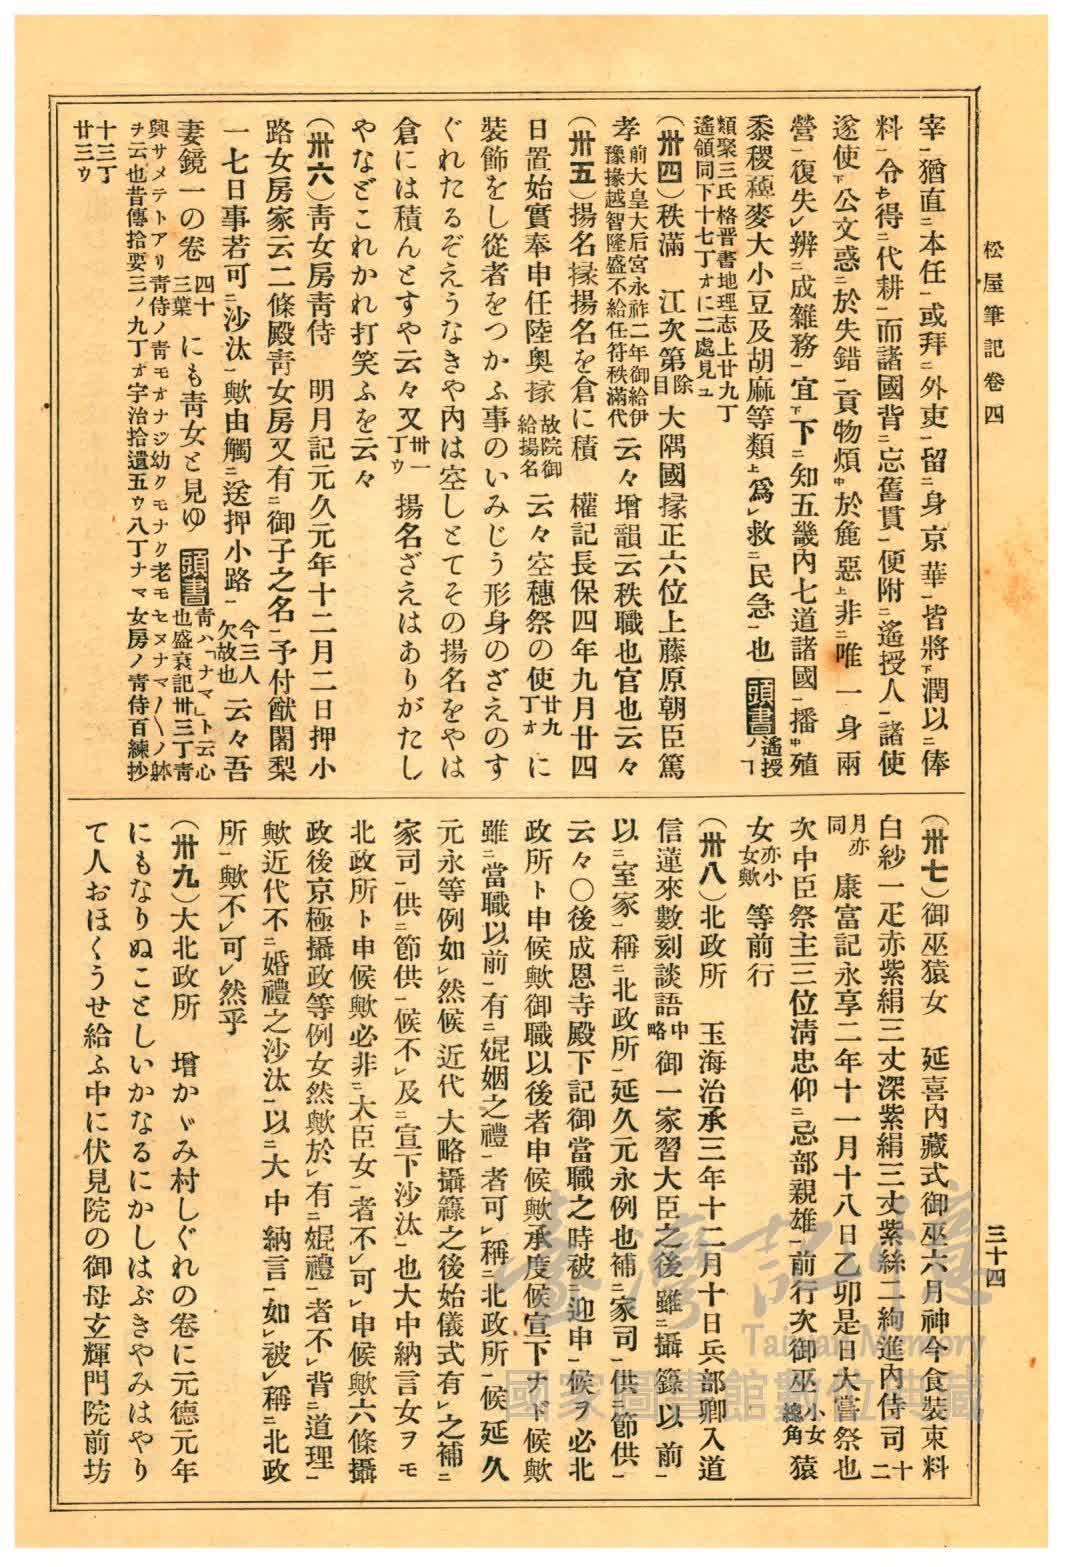 松屋筆記卷四
三十四
宰一猶直二本任一或拜二外吏一留二身京華一皆將下潤以二俸
料一令も得二代耕一而諸國背二忘舊貫一便附二遙授人一諸使
遂使下公文惑二於失錯一貢物煩中於麁惡上非二唯一身兩
營一復失レ辨二成雜務一宜下下二知五畿內七道諸國一播中殖
黍稷穜麥大小豆及胡麻等類上爲レ救二民急一也 頭書 遙授ノヿ
類聚三代格晋書地理志上廿九丁
遙領同下十七丁オに二處見ユ
(卅四)秩滿 江次第除目大隅國掾正六位上藤原朝臣篤
孝前大皇大后宮永祚二年御給伊豫掾越智隆盛不給任符秩滿代云々增韻云秩職也官也云々
(卅五)揚名掾揚名を倉に積 權記長保四年九月廿四
日置始實奉申任陸奧掾故院御給揚名云々空穗祭の使廿九丁オに
裝飾をし從者をつかふ事のいみじう形身のざえのす
ぐれたるぞえうなきや內は空しとてその揚名をやは
倉には積んとすや云々又卅一丁ウ揚名ざえはありがたし
やなどこれかれ打笑ふを云々
(卅六)靑女房靑侍 明月記元久元年十二月二日押小
路女房家云二條殿靑女房又有二御子之名一予付猷闍梨
一七日事若可二沙汰一歟由觸二送押小路一今三人欠故也云々吾
妻鏡一の卷四十三葉にも靑女と見ゆ 頭書 靑ハ「ナマ」ト云心也盛衰記卅三丁靑
興サメテトアリ靑侍ノ靑モオナジ幼クモナク老モセヌナマ〳〵ノ躰
ヲ云也昔傳拾要三ノ九丁オ宇治拾遺五ウ八丁ナマ女房ノ靑侍百練抄
十三丁
廿三ウ
(卅七)御巫猿女 延喜內藏式御巫六月神今食裝束料
白紗一疋亦紫絹三丈深紫絹三丈紫絲二絇進內侍司十二
月亦同 康富記永享二年十一月十八日乙卯是日大嘗祭也
次中臣祭主三位淸忠仰二忌部親雄一前行次御巫小女總角猿
女亦小女歟等前行
(卅八)北政所 玉海治承三年十二月十日兵部卿入道
信蓮來數刻談語中略御一家習大臣之後雖二攝籙以前一
以二室家一稱二北政所一延久元永例也補二家司一供二節供一
云々○後成恩寺殿下記御當職之時被二迎申一候ヲ必北
政所ト申候歟御職以後者申候歟承度候宣下ナド候歟
雖二當職以前一有二婫姻之禮一者可レ稱二北政所一候延久
元永等例如レ然候近代大略攝籙之後始儀式有レ之補二
家司一供二節供一候不レ及二宣下沙汰一也大中納言女ヲモ
北政所ト申候歟必非二大臣女一者不レ可レ申候歟六條攝
政後京極攝政等例女然歟於レ有二婫禮一者不レ背二道理一
歟近代不二婚禮之沙汰一以二大中納言一如レ被レ稱二北政
所一歟不レ可レ然乎
(卅九)大北政所 增かゞみ村しぐれの卷に元德元年
にもなりぬことしいかなるにかしはぶきやみはやり
て人おほくうせ給ふ中に伏見院の御母玄輝門院前坊
臺灣記憶
Taiwan Memory
國家圖書館數位典藏